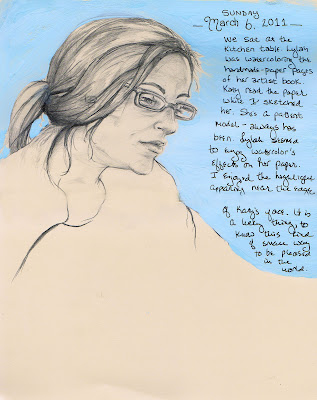 SUNDAY
March 6, 2011
We sat at the
kitchen table. Lylah
was watercoloring the
handmade-paper pages
of her artist book.
Katy read the paper
while I sketched
her. She's a patient
model - always has
been. Lylah seemed
to enjoy watercolor's
effects on her paper.
I enjoyed the
appearing near the edge
of Katy's face. It is
a lucky thing, to
know this kind
of small way
to be pleased
in the
world.